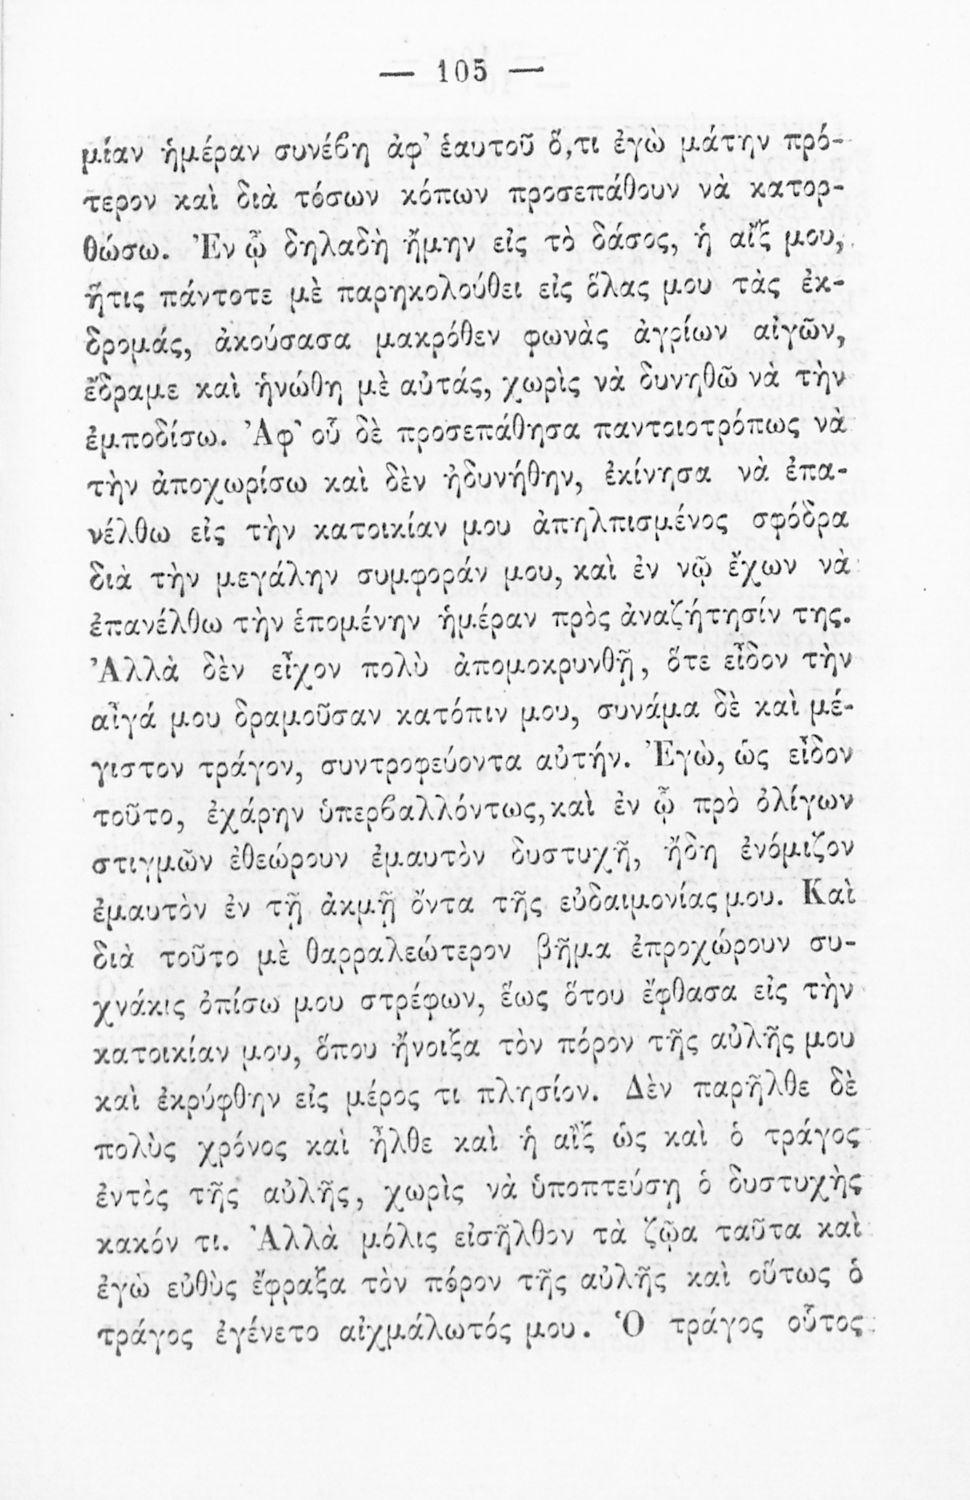 — 105 —
μίαν ἡμέραν συνέβη ἀφ’ ἑαυτοῦ ὅ,τι ἐγὼ μάτην πρό-
τερον καὶ διὰ τόσων κόπων προσεπάθουν νὰ κατορ-
θώσω. Ἐν ᾧ δηλαδὴ ἤμην εἰς τὸ δάσος, ἡ αἴξ μου,
ἥτις πάντοτε μὲ παρηκολούθει εἰς ὅλας μου τὰς ἐκ-
δρομάς, ἀκούσασα μακρόθεν φωνὰς ἀγρίων αἰγῶν,
ἔδραμε καὶ ἡνώθη μὲ αὐτάς, χωρὶς νὰ δυνηθῶ νὰ τὴν
ἐμποδίσω. Ἀφ’ οὗ δὲ προσεπάθησα παντοιοτρόπως νὰ
τὴν ἀποχωρίσω καὶ δὲν ἠδυνήθην, ἐκίνησα νὰ ἐπα-
νέλθω εἰς τὴν κατοικίαν μου ἀπηλπισμένος σφόδρα
διὰ τὴν μεγάλην συμφοράν μου, καὶ ἐν νῷ ἔχων νὰ
ἐπανέλθω τὴν ἑπομένην ἡμέραν πρὸς ἀναζήτησίν της.
Ἀλλὰ δὲν εἶχον πολὺ ἀπομοκρυνθῆ, ὅτε εἶδον τὴν
αἶγά μου δραμοῦσαν κατόπιν μου, συνάμα δὲ καὶ μέ-
γιστον τράγον, συντροφεύοντα αὐτήν. Ἐγὼ, ὡς εἶδον
τοῦτο, ἐχάρην ὑπερβαλλόντως, καὶ ἐν ᾧ πρὸ ὀλίγων
στιγμῶν ἐθεώρουν ἐμαυτὸν δυστυχῆ, ἤδη ἐνόμιζον
ἐμαυτὸν ἐν τῇ ἀκμῇ ὄντα τῆς εὐδαιμονίας μου. Καὶ
διὰ τοῦτο μὲ θαρραλεώτερον βῆμα ἐπροχώρουν συ-
χνάκις ὀπίσω μου στρέφων, ἕως ὅτου ἔφθασα εἰς τὴν
κατοικίαν μου, ὅπου ἤνοιξα τὸν πόρον τῆς αὐλῆς μου
καὶ ἐκρύφθην εἰς μέρος τι πλησίον. Δὲν παρῆλθε δὲ
πολὺς χρόνος καὶ ἦλθε καὶ ἡ αἲξ ὡς καὶ ὁ τράγος
ἐντὸς τῆς αὐλῆς, χωρὶς νὰ ὑποπτεύσῃ ὁ δυστυχὴς
κακόν τι. Ἀλλὰ μόλις εἰσῆλθον τὰ ζῷα ταῦτα καὶ
ἐγὼ εὐθὺς ἔφραξα τὸν πόρον τῆς αὐλῆς καὶ οὕτως ὁ
τράγος ἐγένετο αἰχμάλωτός μου. Ὁ τράγος οὗτος